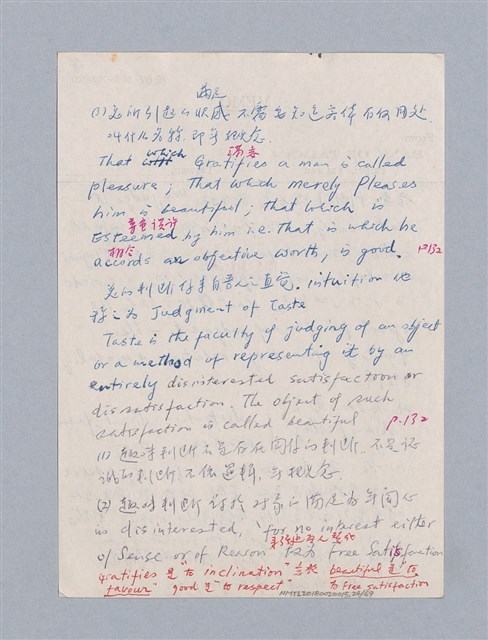 滿足
(1) 美所引起的快感 不需要知道实体有何用处.
叫什么名称. 即寻概念.
滿意
That which Gratifies a man is called
pleasure; That which merely Pleases
him is beautiful; that which is
尊重 讚許
Esteemed by him i.e. that is which he
相合
accords an objective worth, is good. P132
美的判断 人之直覚. intuition 他
称之為 Judgment of Taste
Taste is the faculty of judging of an object
or a method of representing it by an
entirely disinterested satisfactoon or
dissatisfaction. The object of such
satisfaction is called beautiful p.132
(1) 趣味判断不是 的判断. 不是
的判断 不依邏輯, 概念.
(2) 趣味判断 对象之滿足为
is disinterested, 'for no interest either
of Sense or of Reason' 故为 free Satisfaction
Gratifies 是 "to inclination" beautiful 是 "to
favour" good 是 "to respect" to free satisfaction
NMTL20180020015,26/69